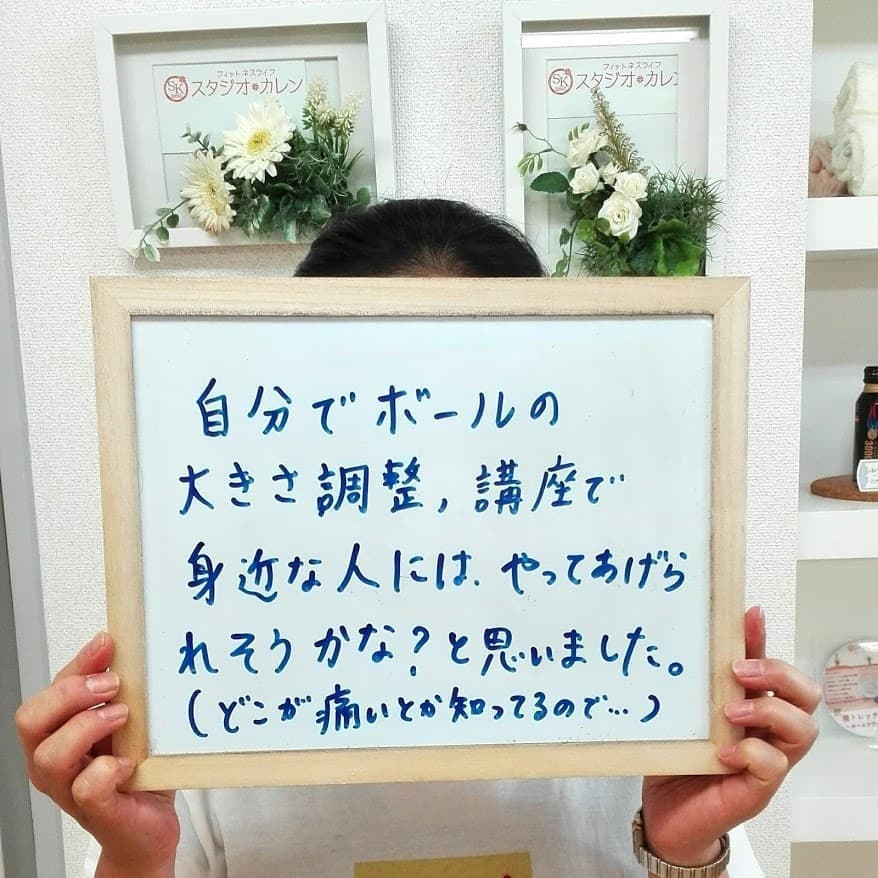 フィットネスライフ
SK スタジオ カレン
フィットネスライフ
SK スタジオ カレン
自分でボールの
大きさ調整,講座で
身近な人には、やってあげら
れそうかな?と思いました。
(どこが痛いとか知ってるので…)